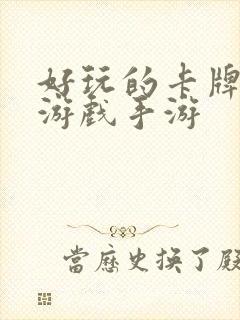 好玩的卡牌
游戏手游
當歷史换了殿